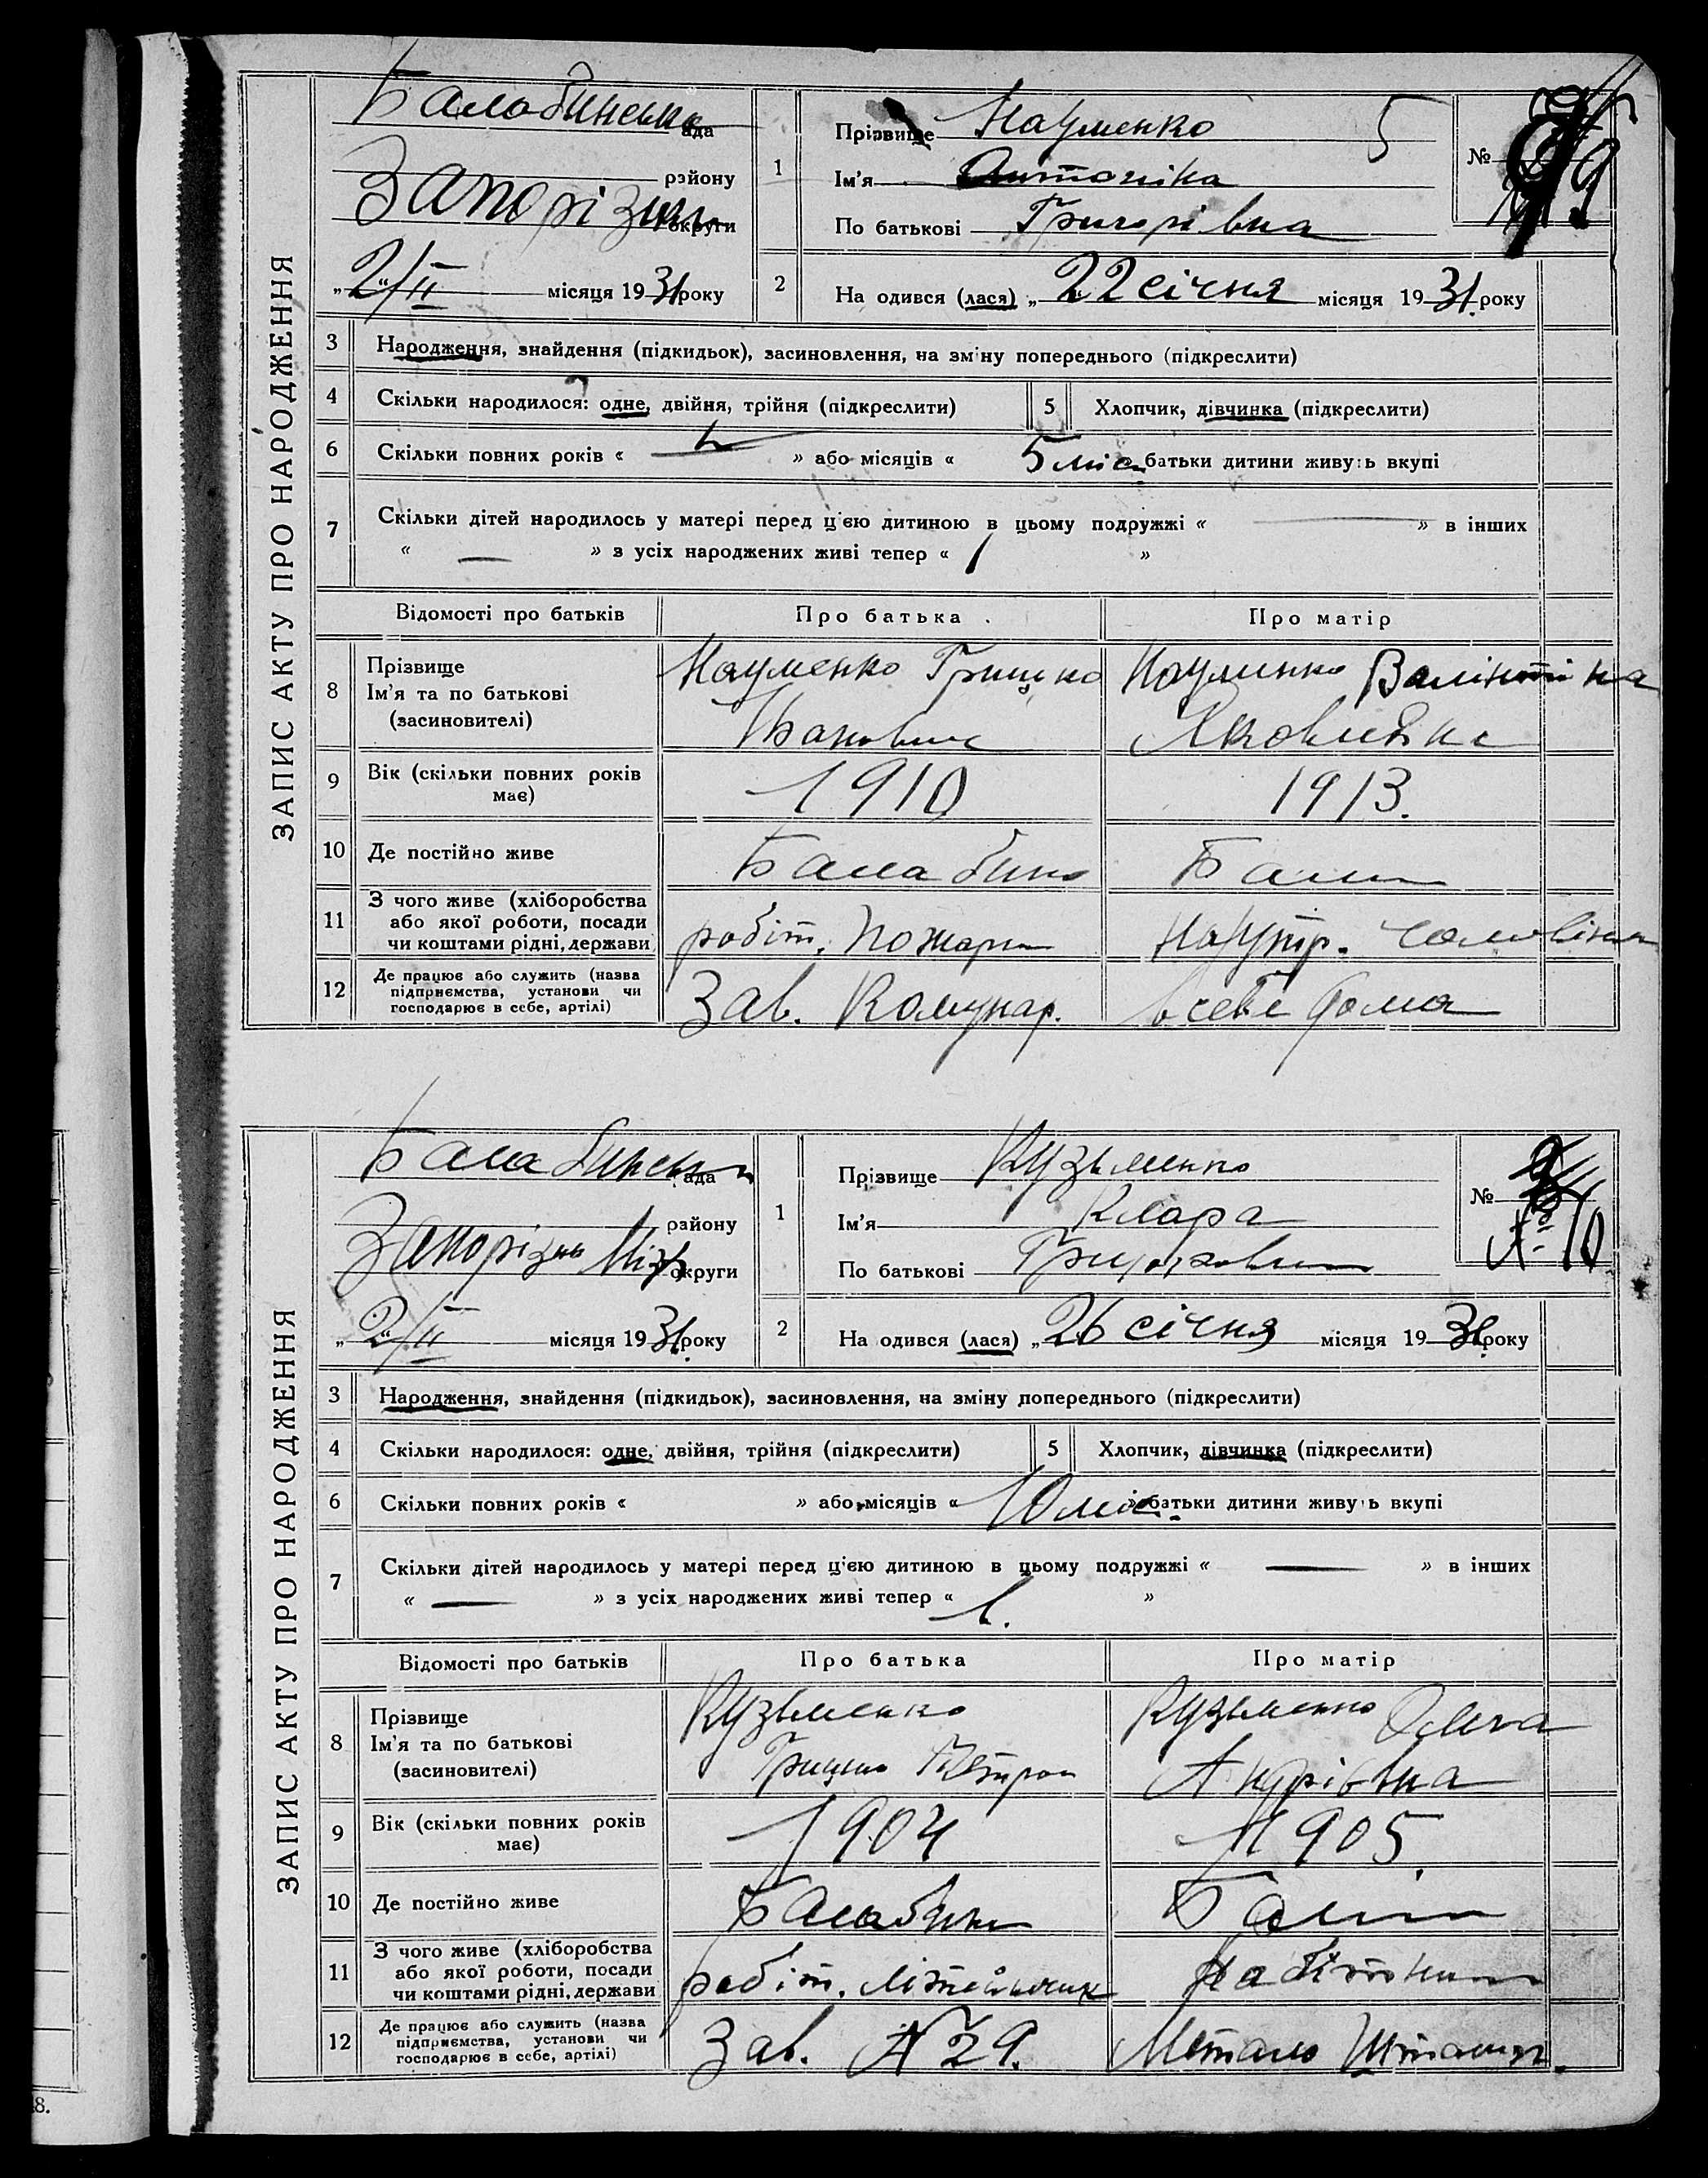 ЗАПИС АКТУ ПРО НАРОДЖЕННЯ
Балабинська ада
району
Запорізьк округи
„2/II місяця 1931 року
1
Прізвище Науменко 5
Ім'я Антоніна
По батькові Григорівна
№ 9
2
На одився (лася) „22 січня місяця 1931 року
3 Народження, знайдення (підкидьок), засиновлення, на зміну попереднього (підкреслити)
4 Скільки народилося: одне, двійня, трійня (підкреслити) 5 Хлопчик, дівчинка (підкреслити)
6 Скільки повних років « » або місяців « 5 міс. батьки дитини живуть вкупі
7 Скільки дітей народилось у матері перед ц'єю дитиною в цьому подружжі « — » в інших
« — » з усіх народжених живі тепер « 1 »
Відомості про батьків Про батька Про матір
8 Прізвище
Ім'я та по батькові
(засновителі)
Науменко Грицко
Іванович
Науменко Валінтіна
Яковлівна
9 Вік (скільки повних років має) 1910 1913.
10 Де постійно живе Балабино Балаб
11 З чого живе (хліборобства
або якої роботи, посади
чи коштами рідні, держави
робіт. Пожарн На утр. чоловіка
12 Де працює або служить (назва
підприємства, установи чи
господарює в себе, артілі)
Зав. Комунар. в себе дома
ЗАПИС АКТУ ПРО НАРОДЖЕННЯ
Балабинськ ада
району
Запорізьк Міськ округи
„2/II місяця 1931 року
1
Прізвище Кузьменко
Ім'я Клара
По батькові
№ 10
2
На одився (лася) „26 січня місяця 1931 року
3 Народження, знайдення (підкидьок), засиновлення, на зміну попереднього (підкреслити)
4 Скільки народилося: одне, двійня, трійня (підкреслити) 5 Хлопчик, дівчинка (підкреслити)
6 Скільки повних років « » або місяців « 10 міс. » батьки дитини живуть вкупі
7 Скільки дітей народилось у матері перед ц'єю дитиною в цьому подружжі « — » в інших
« — » з усіх народжених живі тепер « 1. »
Відомості про батьків Про батька Про матір
8 Прізвище
Ім'я та по батькові
(засновителі)
Кузьменко
Грицько Петров
Кузьменко Ольга
Андрівна
9 Вік (скільки повних років має) 1904 1905.
10 Де постійно живе Балабин Балаб
11 З чого живе (хліборобства
або якої роботи, посади
чи коштами рідні, держави
робіт. Літейщик
12 Де працює або служить (назва
підприємства, установи чи
господарює в себе, артілі)
Зав. № 29. Метало Штамп.
8.